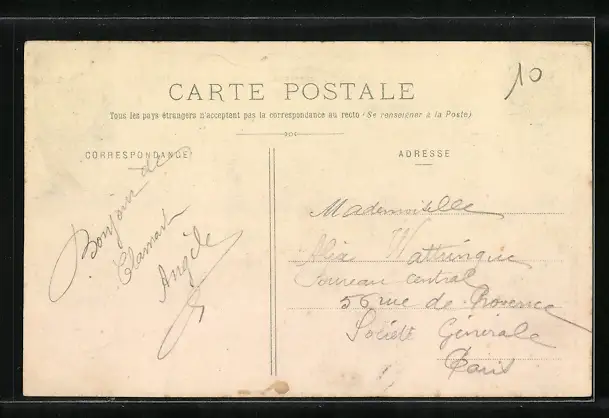 10
CARTE POSTALE
Tous les pays étrangers n'acceptent pas la correspondance au recto (Se renseigner à la Poste)
CORRESPONDANCE
Bonjour de
Clamart
Angèle
ADRESSE
Mademoiselle
Alix Wattringue
Bureau central
56 rue de Provence
Société Générale
Paris